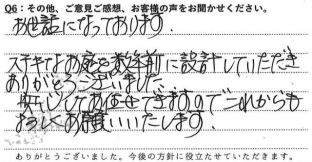 Q6：その他、ご意見ご感想、お客様の声をお聞かせください。
お世話になっております。
ステキなお庭を数年前に設計していただき
ありがとうございました
安心してお任せできますのでこれからも
よろしくお願いいたします。
ありがとうございました。今後の方針に役立たせていただきます。